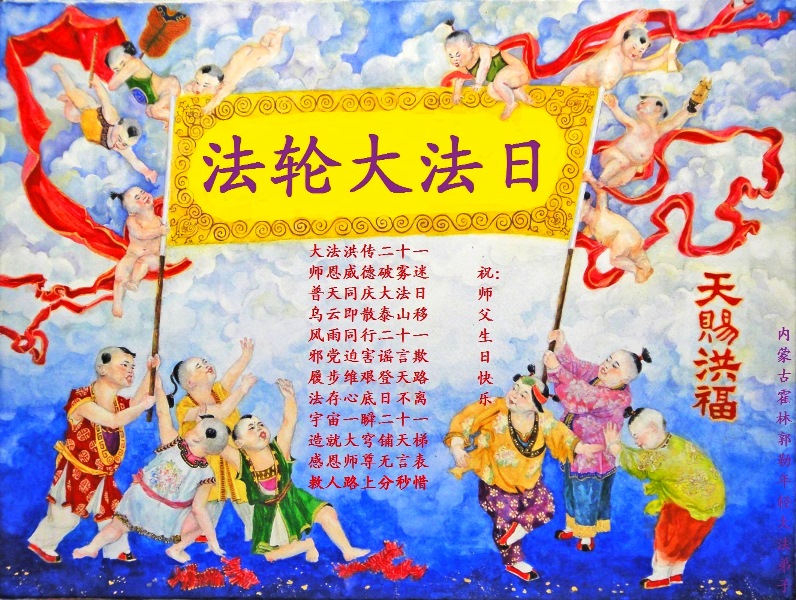 法轮大法日
大法洪传二十一
师恩威德破雾迷
普天同庆大法日
乌云即散泰山移
风雨同行二十一
邪党迫害谣言欺
履步维艰登天路
法存心底日不离
宇宙一瞬二十一
造就大穹铺天梯
感恩师尊无言表
救人路上分秒惜
祝：
师父生日快乐
天賜洪福
内蒙古霍林郭勒年轻大法弟子